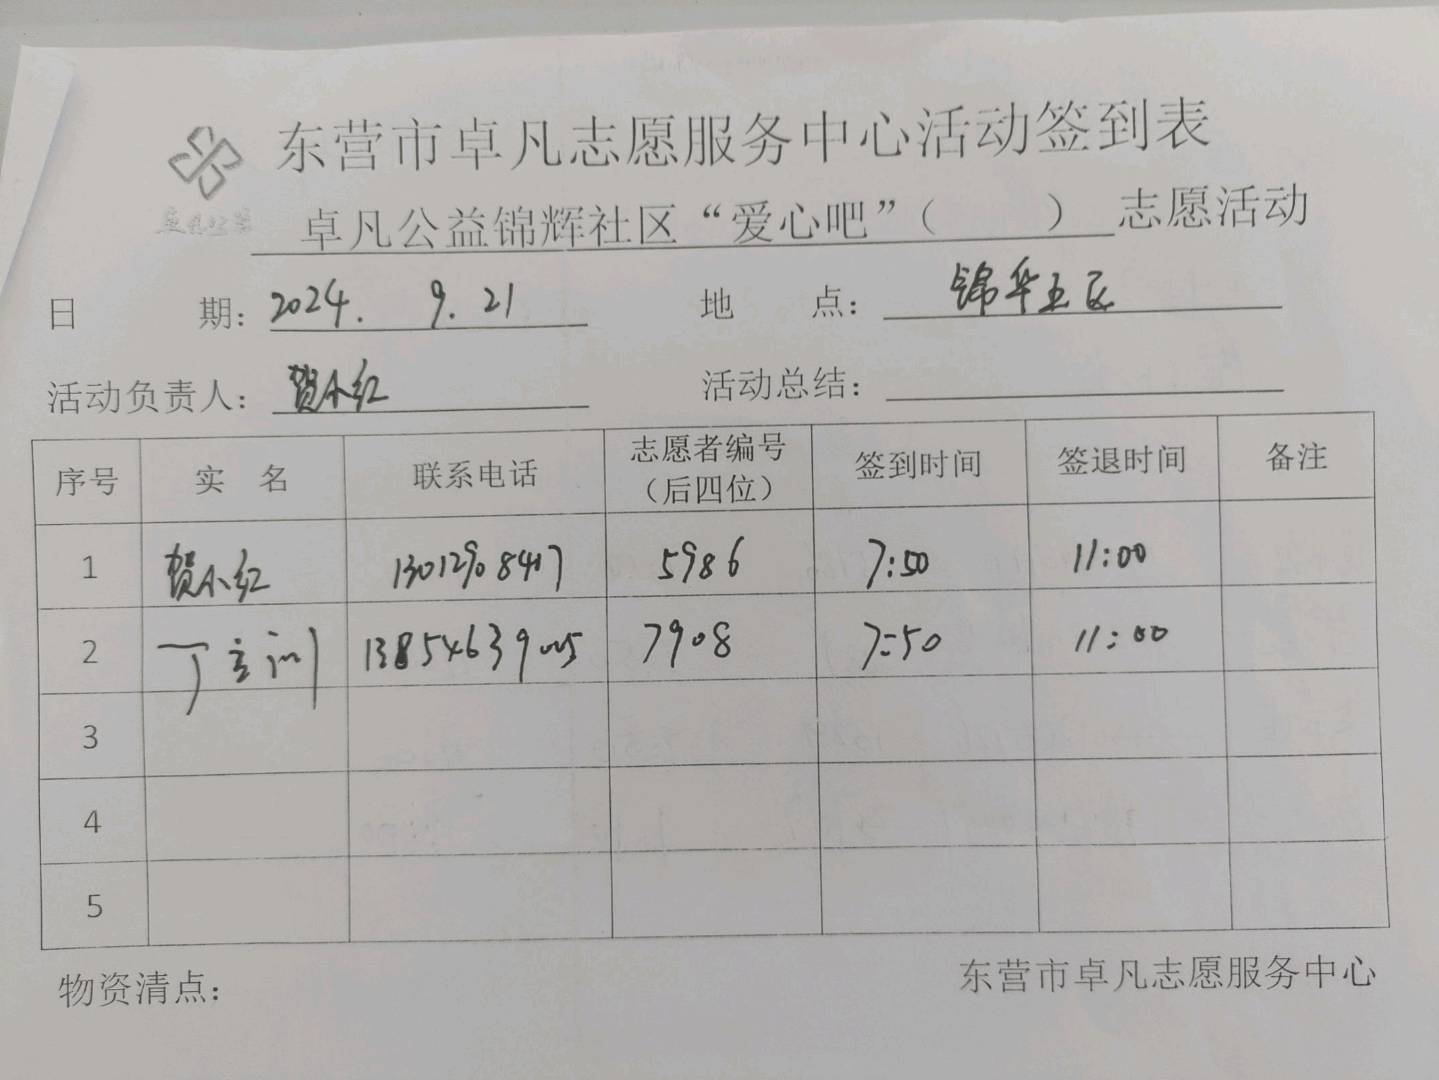 东营市卓凡志愿服务中心活动签到表
卓凡公益锦辉社区“爱心吧”（　　）志愿活动
日 期：2024. 9. 21 地 点：锦华五区
活动负责人：贺小红 活动总结：
序号 实 名 联系电话 志愿者编号（后四位） 签到时间 签退时间 备注
1 贺小红 13012908417 5986 7:50 11:00
2 丁 13854639005 7908 7:50 11:00
3
4
5
物资清点： 东营市卓凡志愿服务中心